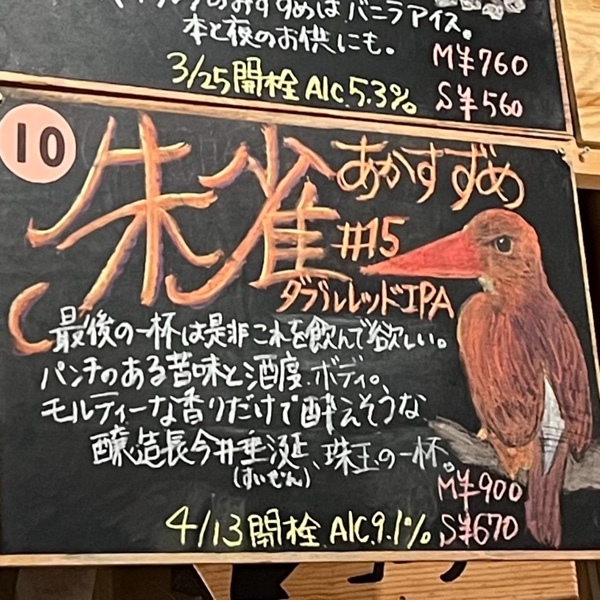 のおすすめはバニラアイス。
本と夜のお供にも。
M¥760
3/25開栓 Alc.5.3% S¥560
10
朱雀 あかすずめ
#15
ダブルレッドIPA
最後の一杯は是非これを飲んで欲しい。
パンチのある苦味と酒度、ボディ。
モルティーな香りだけで酔えそうな
醸造長今井垂涎、珠玉の一杯。
(すいぜん)
M¥900
4/13開栓 Alc.9.1% S¥670